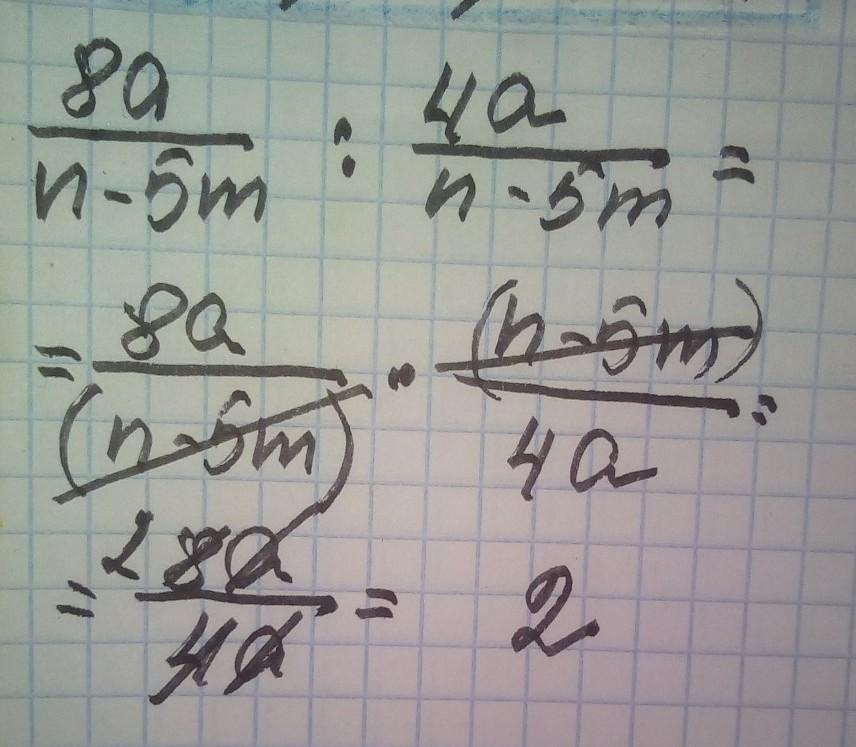 8a/(n-5m) : 4a/(n-5m) =
= 8a/(n-5m) · (n-5m)/4a =
= 2 8a/4a = 2